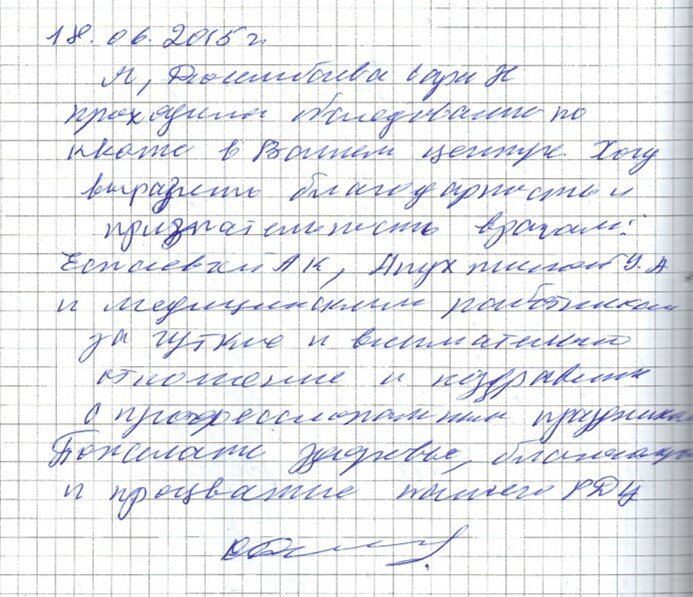 18.06.2015 г.
Я,
проходила обследование по
квоте в Вашем центре. Хочу
выразить благодарность и
признательность врачам:
А К, У. А
и медицинским работникам
за чуткое и внимательное
отношение и поздравить
с профессиональным праздником
Пожелать здоровье,
и процветание вашего РДЦ